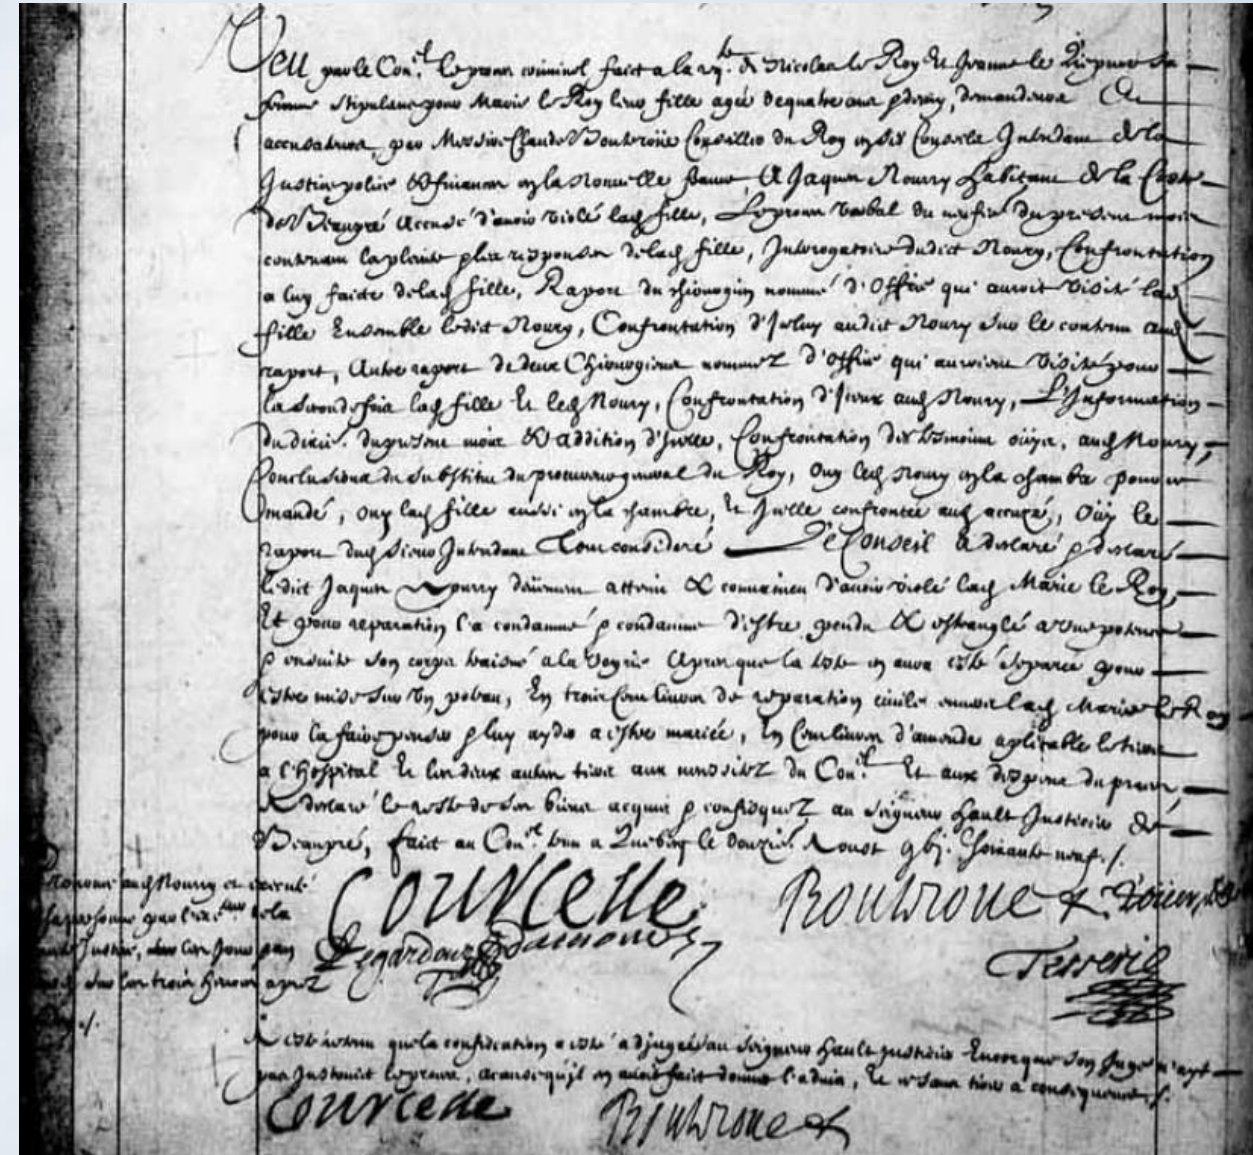 Veu par le Con.el le proces criminel faict a la rq.te de Nicolas le Roy et Jeanne le Lieपvre sa
femme stipulans pour Marie le Roy leur fille agée de quatre ans & demy, demandeurs Et
accusateurs, par Messire Claude Boutroüe Conseiller du Roy en ses Conseils Intendant de la
Justice police & finances en la Nouuelle france, A Jaques Nourry habitant de la Coste
de Beaupré Accusé d'auoir violé lad fille, Le proces verbal du neufie du present mois
contenant la plainte & les responses de lad fille, Interrogatoire dudict Noury, Confrontation
a luy faicte de lad fille, Raport du chirurgien nommé d'Office qui auroit visité lad
fille Ensemble ledict Noury, Confrontation d'Iceluy audict Noury sur le contenu aud
raport, Autre raport de deux Chirurgiens nommez d'office qui auroient visité pour
la seconde fois lad fille Et led Noury, Confrontation d'Iceux aud Noury, L'Information
du dixie. du present mois & addition d'Icelle, Confrontation des tesmoins oüys, aud Noury,
Conclusions du substitut du procureur general du Roy, Ouy led Noury en la chambre pour ce
mandé, ouy lad fille aussi en la chambre, Et Icelle confrontée aud accusé, Oüy le
raport dud sieur Intendant Tout consideré Le Conseil a declaré & declare
ledict Jaques Nourry deüement atteint & conuaincu d'auoir violé lad Marie le Roy,
Et pour reparation l'a condamné & condamne d'estre pendu & estranglé a vne potence
& ensuite son corps traisné a la voyrie Apres que la teste en aura esté separée pour
estre mise sur vn poteau, En trois Cens liures de reparation ciuile enuers lad Marie le Roy
pour la faire penser & luy ayder a estre mariée, En Cent liures d'amende aplicable le tiers
a l'Hospital Et les deux autres tiers aux necessitez du Con.el Et aux despens du proces,
& declaré le reste de ses biens acquis & confisquez au seigneur Hault Justicier de
Beaupré, faict au Con.el tenu a Quebecq le douzie. Aoust gbj. soixante neuf ./.
Courcelle Boutroüe
Legardeur Damours
Tesserie
Prononcé aud Nourry et executé
sa personne par l'exe.teur de la
Justice, les Jour
sur les trois heures apres
./.
A esté retenu que la confiscation a esté adjugée au seigneur hault justicier Encor que son Juge n'ayt
pas Instruict le proces, a cause qu'il en auoit fait donner l'aduis, Et ce sans tirer a consequence ./.
Courcelle Boutroüe